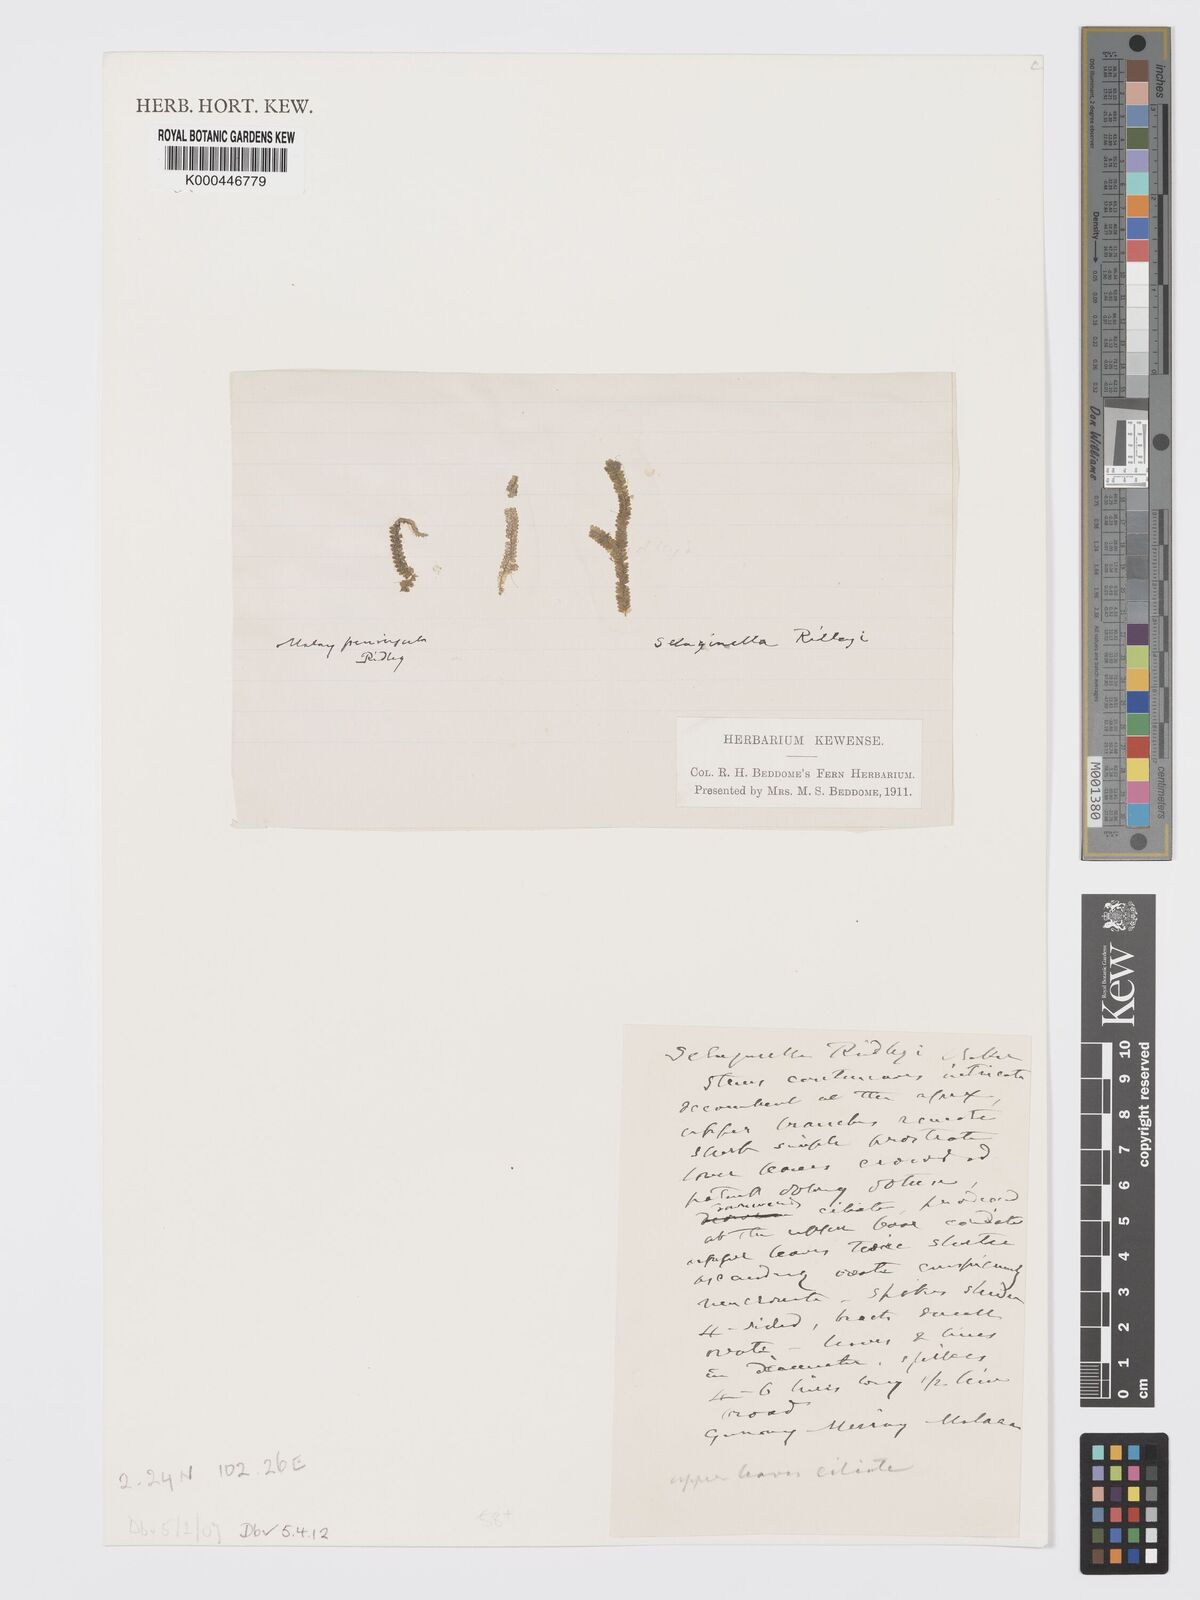 HERB. HORT. KEW.
ROYAL BOTANIC GARDENS KEW
K000446779
Malay peninsula
Ridley
Selaginella Ridleyi
HERBARIUM KEWENSE.
COL. R. H. BEDDOME'S FERN HERBARIUM.
Presented by MRS. M. S. BEDDOME, 1911.
Selaginella Ridleyi Baker
Stems continuous intricate
decumbent at the apex,
upper branches remote
short simple prostrate
lower leaves crowded
patent oblong obtuse,
ciliate, produced
at the upper base cordate
upper leaves twice shorter
ascending ovate
spikes slender
4-sided, bracts small
ovate - leaves 2 lines
in diameter. spikes
4-6 lines long 1/2 line
broad
Malacca
upper leaves ciliate
2.24N 102.26E
Dbv 5/2/07 Dbv 5.4.12
58+
inches
Density
Don Williams
centimeters
M001380
Royal Botanic Gardens
Kew
0 1 2 3 4 5 6 7 8 9 10
cm
copyright reserved